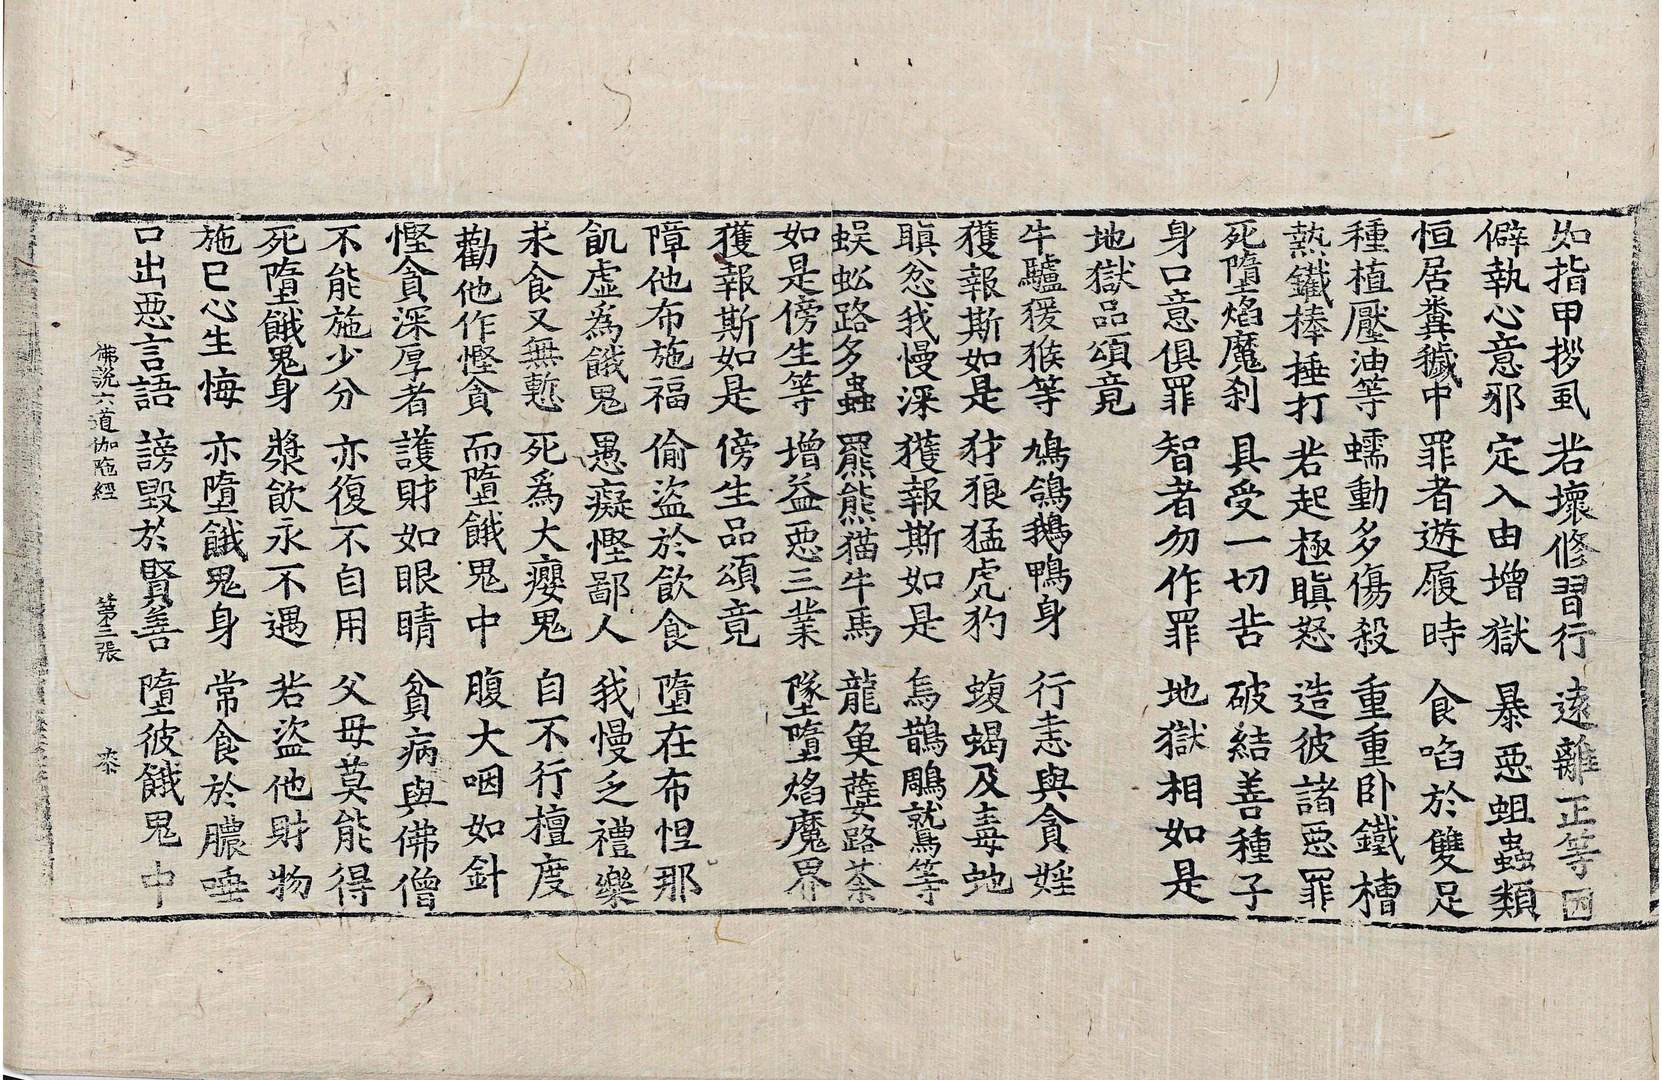 如指甲拶虱 若壞修習行 遠離正等因
僻執心意邪 定入由增獄 暴惡蛆蟲類
恒居糞穢中 罪者遊履時 食啗於雙足
種植壓油等 蠕動多傷殺 重重臥鐵槽
熱鐵棒捶打 若起極瞋怒 造彼諸惡罪
死墮焰魔刹 具受一切苦 破結善種子
身口意俱罪 智者勿作罪 地獄相如是
地獄品頌竟
牛驢猨猴等 鳩鴿鵝鴨身 行恚與貪婬
獲報斯如是 犲狼猛虎犳 蝮蝎及毒虵
瞋忿我慢深 獲報斯如是 烏鵲鵰鷲等
蜈蚣路多蟲 羆熊猫牛馬 龍魚蘡路茶
如是傍生等 增益惡三業 墜墮焰魔界
獲報斯如是 傍生品頌竟
障他布施福 偷盜於飲食 墮在布怛那
飢虛為餓鬼 愚癡慳鄙人 我慢乏禮樂
求食又無慙 死為大癭鬼 自不行檀度
勸他作慳貪 而墮餓鬼中 腹大咽如針
慳貪深厚者 護財如眼睛 貧病與佛僧
不能施少分 亦復不自用 父母莫能得
死墮餓鬼身 漿飲永不遇 若盜他財物
施已心生悔 亦墮餓鬼身 常食於膿唾
口出惡言語 謗毀於賢善 墮彼餓鬼中
佛說六道伽陁經 第三張